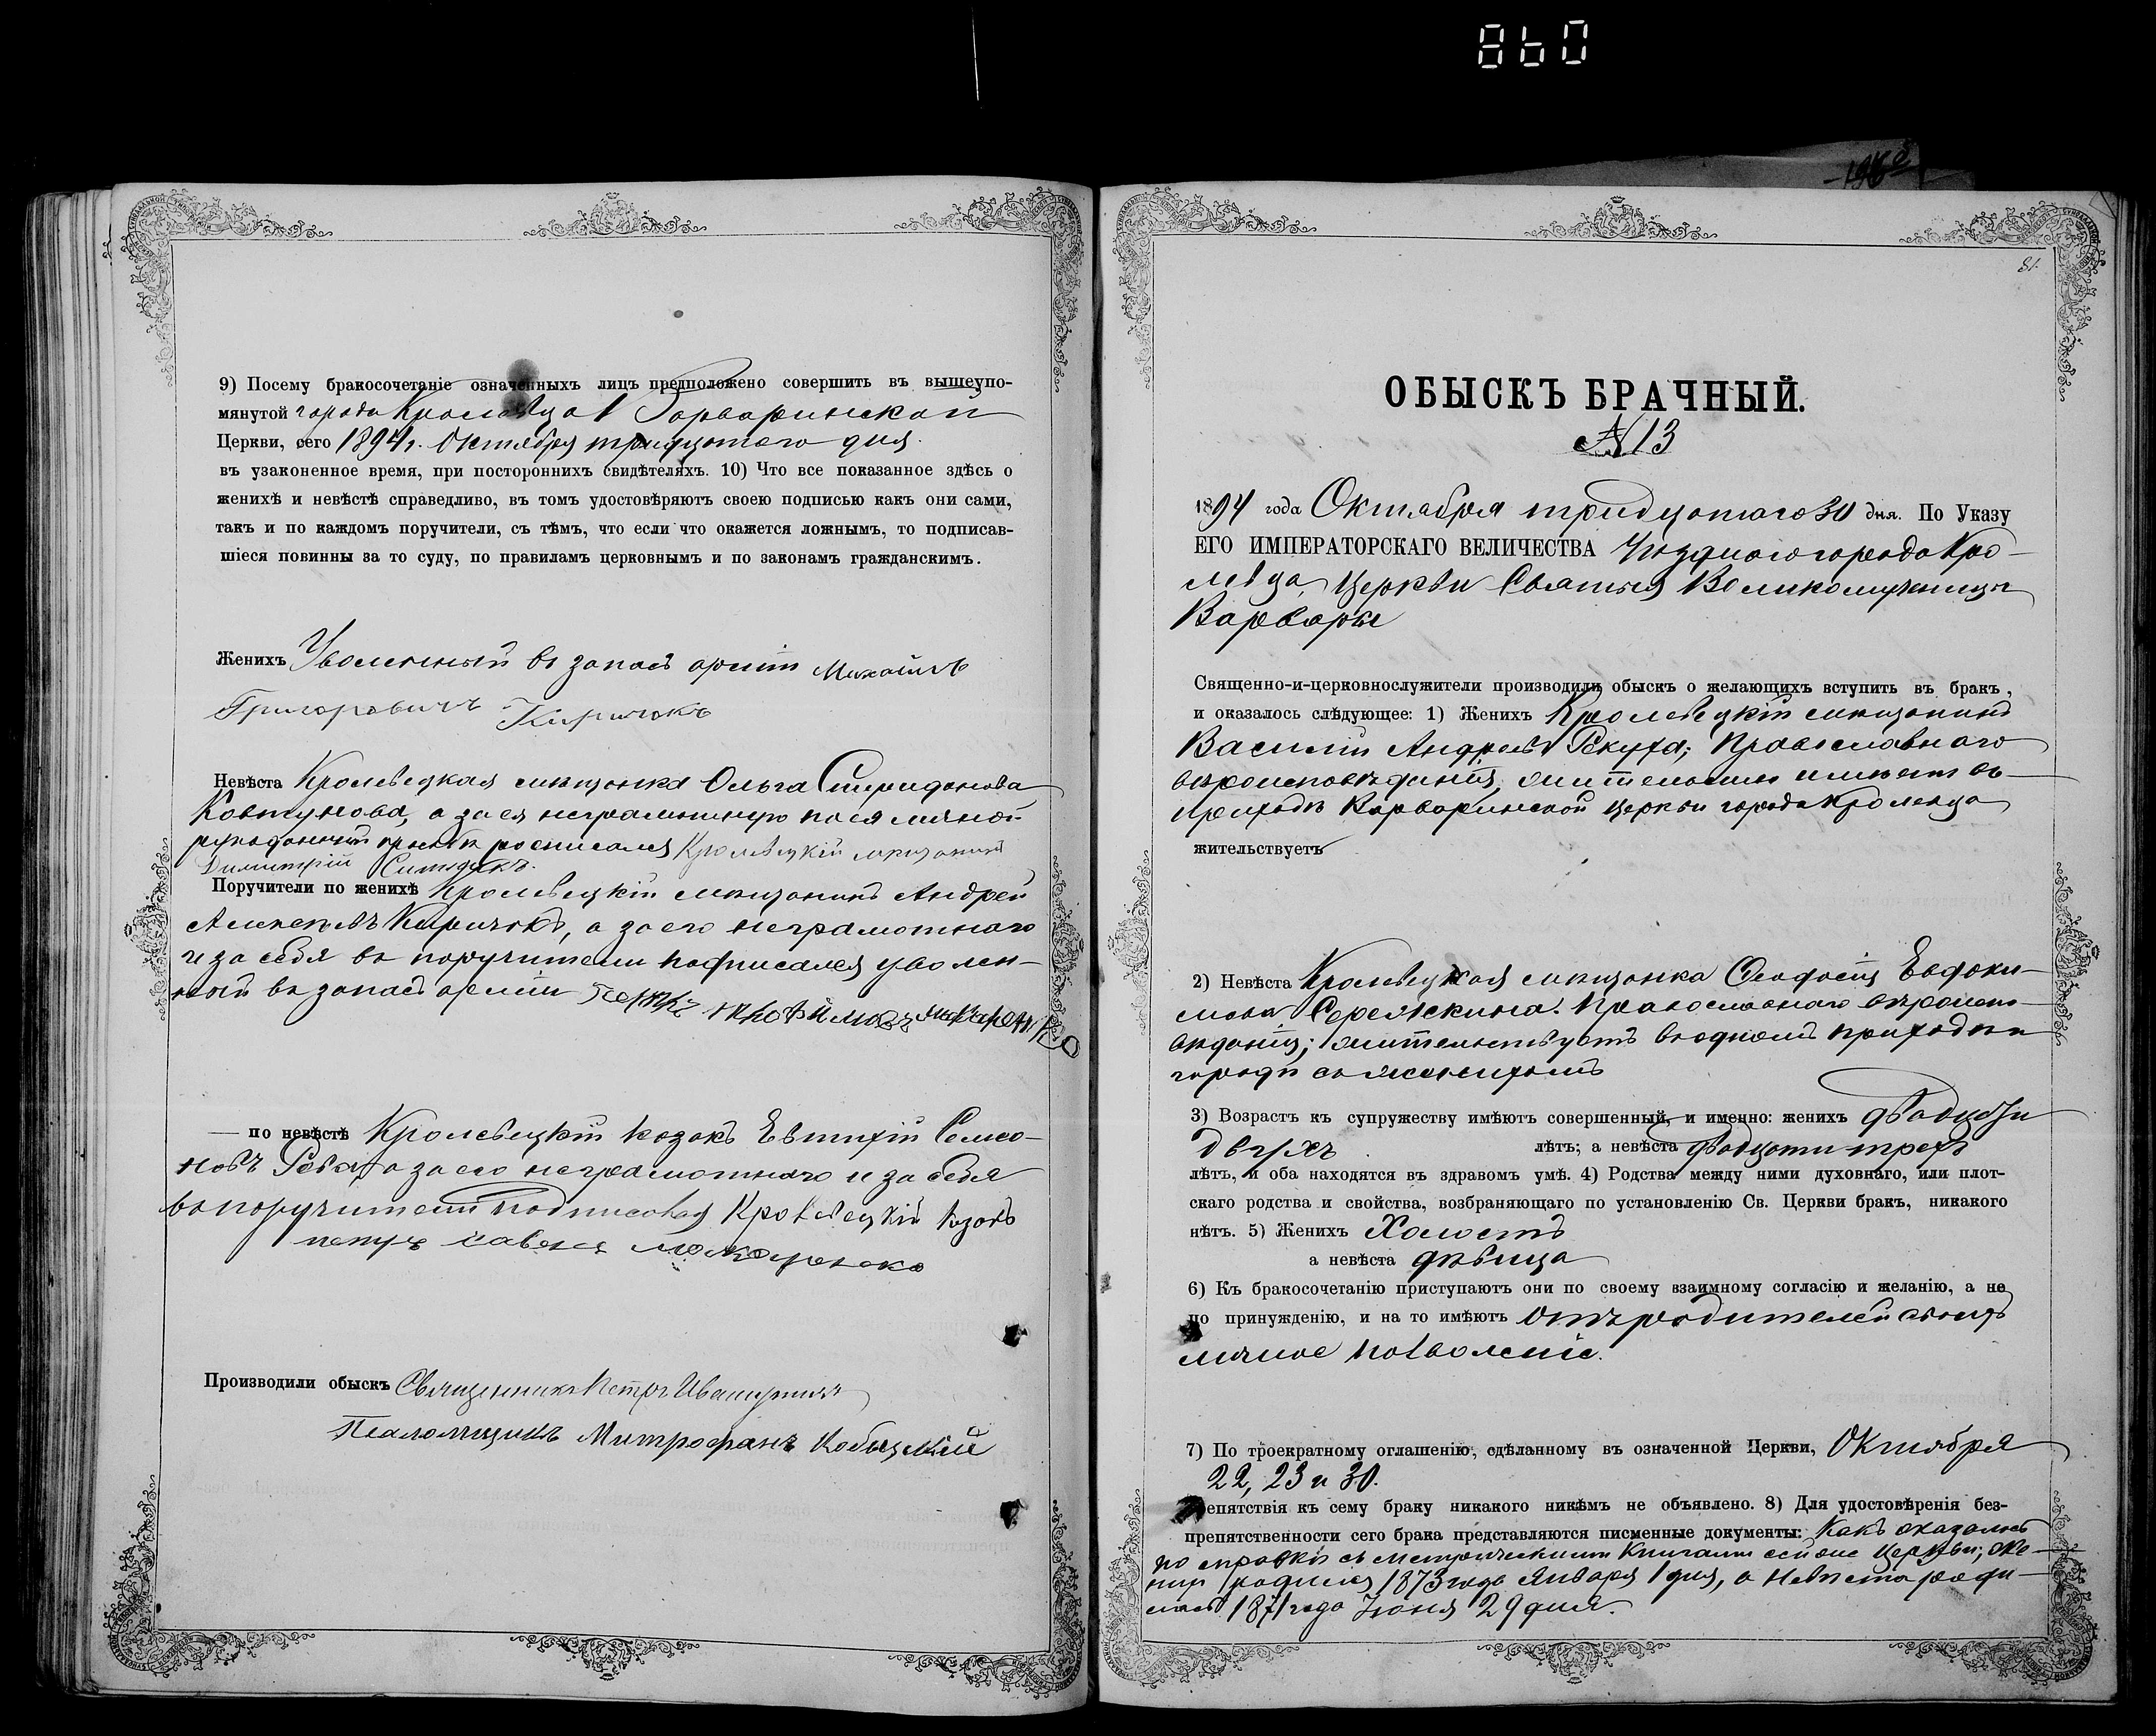 860
81.
9) Посему бракосочетаніе означенныхъ лицъ предположено совершить въ вышеупо-
мянутой города Кролевца Варваринской
Церкви, сего 1894 г. Октября тридцатаго дня.
въ узаконенное время, при постороннихъ свидѣтеляхъ. 10) Что все показанное здѣсь о
женихѣ и невѣстѣ справедливо, въ томъ удостовѣряютъ своею подписью какъ они сами,
такъ и по каждомъ поручители, съ тѣмъ, что если что окажется ложнымъ, то подписав-
шіеся повинны за то суду, по правиламъ церковнымъ и по законамъ гражданскимъ.
Женихъ Уволенный въ запасъ арміи Михаилъ
Григоровичъ Киричокъ
Невѣста Кролевецкая мѣщанка Ольга Спиридонова
Ковтунова, а за ея неграмотную по ея личной
рукоданной прозьбѣ росписался Кролевецкій мѣщанинъ
Димитрій
Поручители по женихѣ Кролевецкій мѣщанинъ Андрей
Алексѣевъ Киричокъ, а за его неграмотнаго
и за себя въ поручители подписался уволен-
ный въ запасъ арміи Трофимовъ Макаренко
по невѣстѣ Кролевецкій козакъ Евтихій Семео-
новъ а за его неграмотнаго и за себя
въ поручители подписовался Кролевецкій козакъ
петръ савенъ макаренко
Производили обыскъ Священникъ Петръ
Псаломщикъ Митрофанъ
ОБЫСКЪ БРАЧНЫЙ.
№ 13
1894 года Октября тридцатаго 30 дня. По Указу
ЕГО ИМПЕРАТОРСКАГО ВЕЛИЧЕСТВА Уѣзднаго города Кро-
левца, Церкви Святыя Великомученицы
Варвары
Священно-и-церковнослужители производили обыскъ о желающихъ вступить въ бракъ,
и оказалось слѣдующее: 1) Женихъ Кролевецкій мѣщанинъ
Василій Андреевъ Рекуха; Православнаго
вѣроисповѣданія, жительство имѣетъ въ
приходѣ Варваринской церкви города Кролевца
жительствуетъ
2) Невѣста Кролевецкая мѣщанка Феодосія Евдоки-
мова Сережкина. Православнаго вѣроиспо-
вѣданія; жительствуетъ въ одномъ приходѣ и
городѣ съ женихомъ
3) Возрастъ къ супружеству имѣютъ совершенный, и именно: женихъ двадцати
двухъ лѣтъ; а невѣста двадцати трехъ
лѣтъ, и оба находятся въ здравомъ умѣ. 4) Родства между ними духовнаго, или плот-
скаго родства и свойства, возбраняющаго по установленію Св. Церкви бракъ, никакого
нѣтъ. 5) Женихъ Холостъ
а невѣста дѣвица
6) Къ бракосочетанію приступаютъ они по своему взаимному согласію и желанію, а не
по принужденію, и на то имѣютъ отъ родителей своихъ
личное позволеніе.
7) По троекратному оглашенію, сдѣланному въ означенной Церкви, Октября
22, 23 и 30.
репятствія къ сему браку никакого никѣмъ не объявлено. 8) Для удостовѣренія без-
препятственности сего брака представляются писменные документы: Какъ оказалось
по справкѣ съ метрическими Книгами сей же Церкви, же-
нихъ родился 1873 года Января 1 дня, а Невѣста роди-
лась 1871 года Іюня 29 дня.